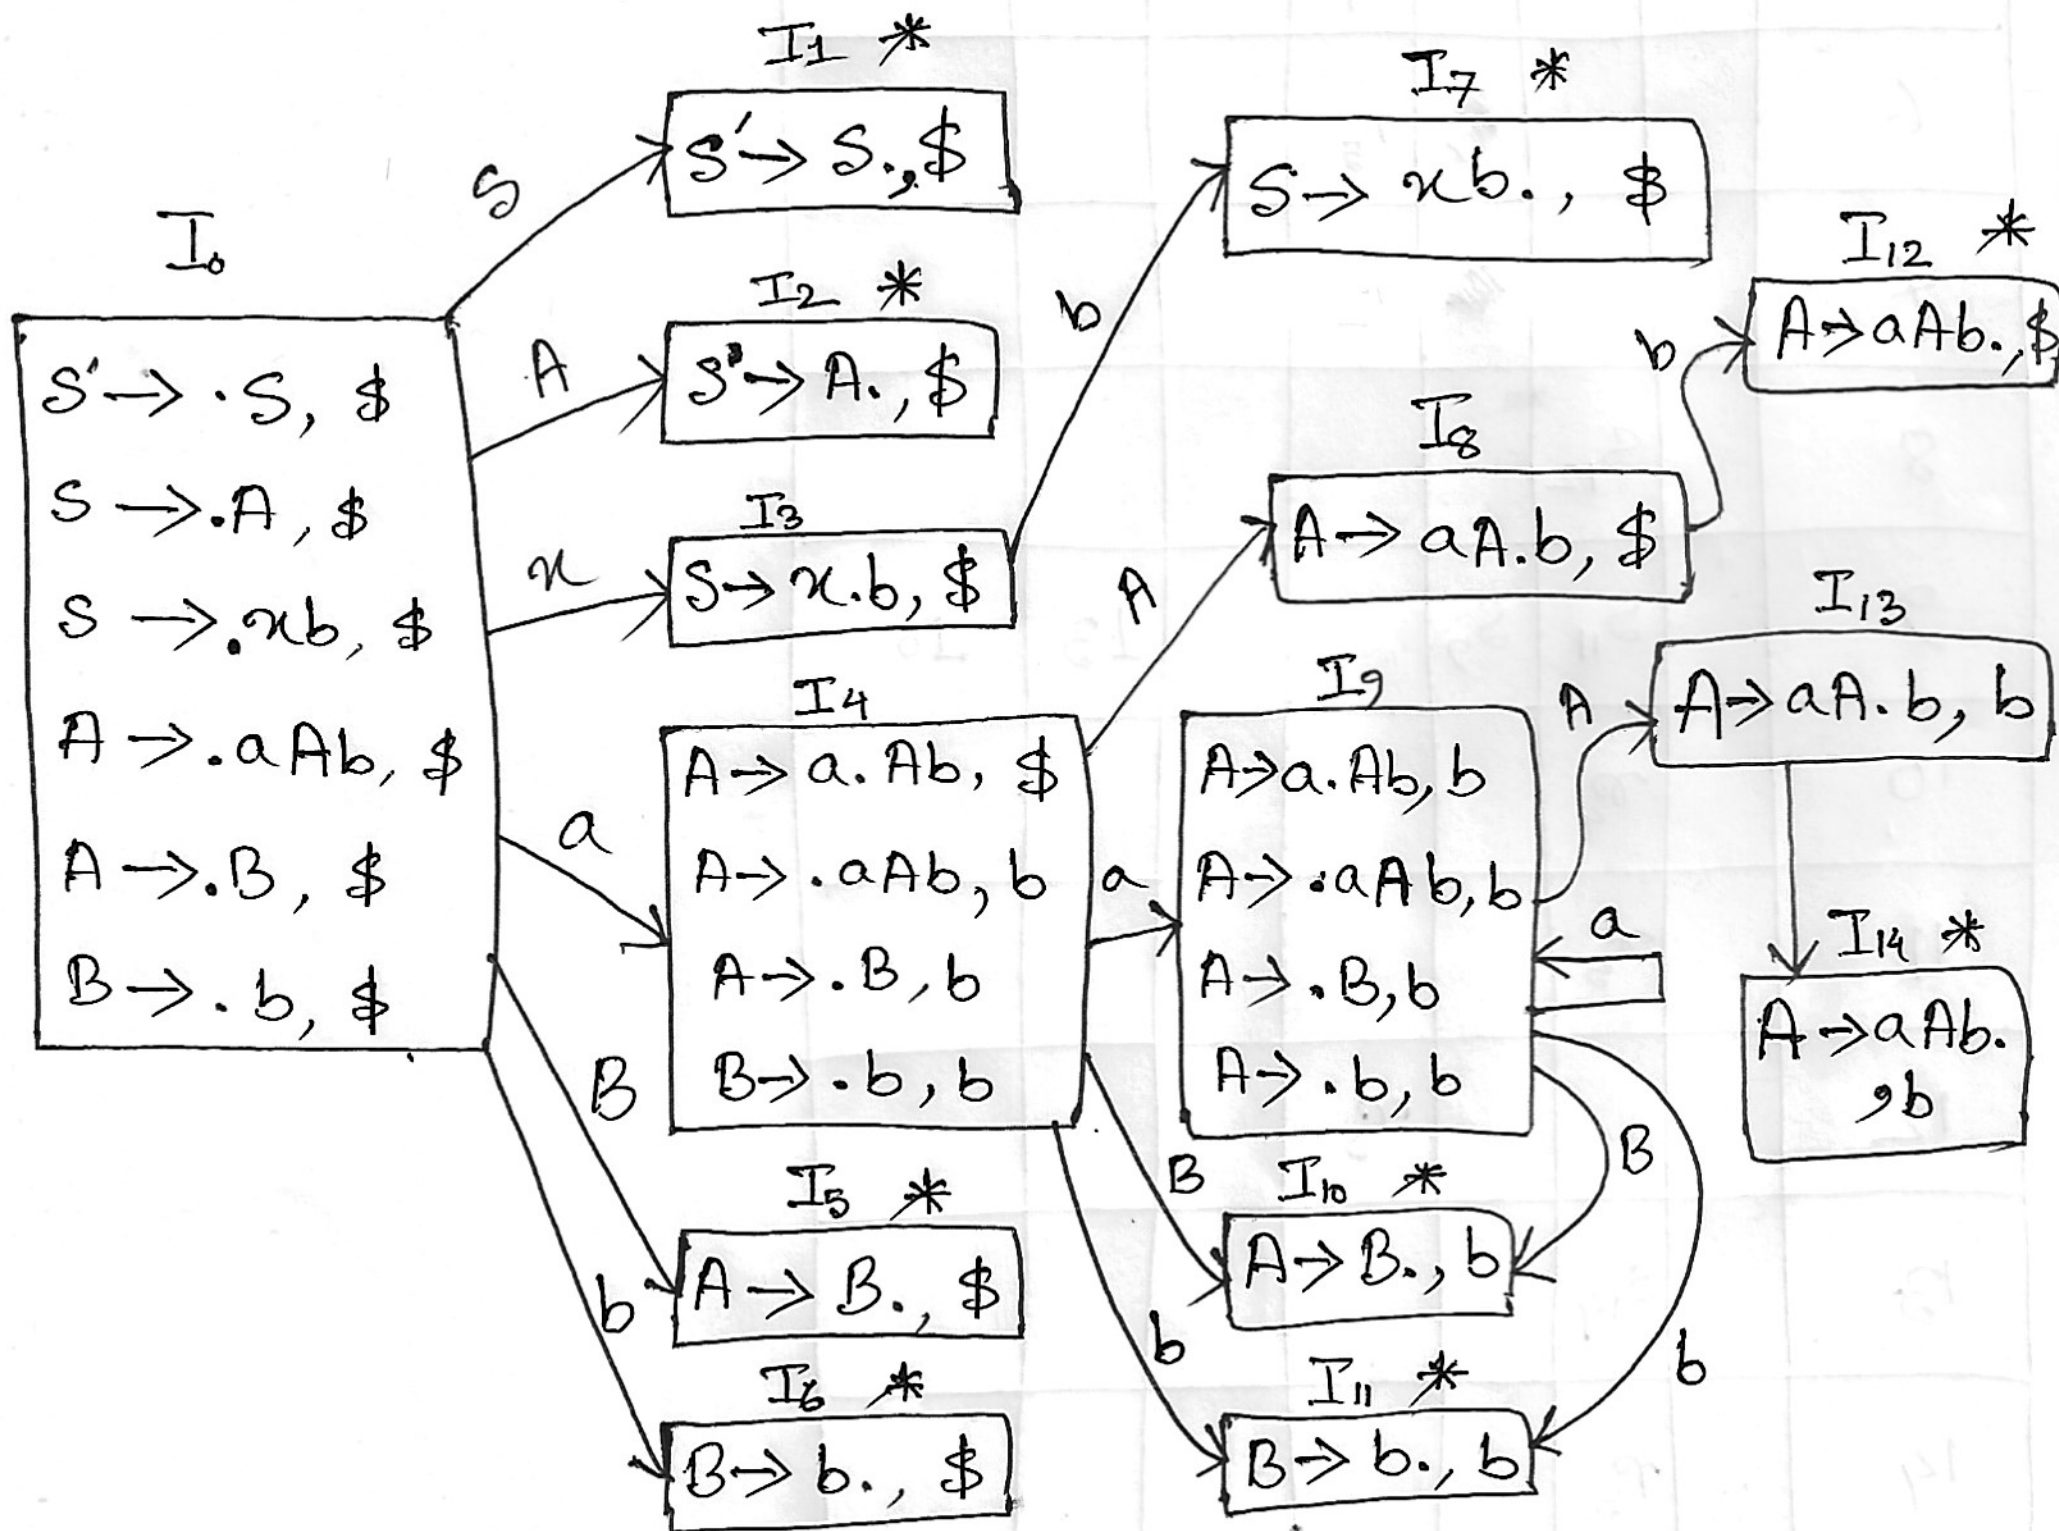 I0
S' → .S, $
S → .A, $
S → .xb, $
A → .aAb, $
A → .B, $
B → .b, $
S
A
x
a
B
b
I1 *
S' → S., $
I2 *
S' → A., $
I3
S → x.b, $
I4
A → a.Ab, $
A → .aAb, b
A → .B, b
B → .b, b
I5 *
A → B., $
I6 *
B → b., $
b
A
a
B
b
I7 *
S → xb., $
I8
A → aA.b, $
I9
A → a.Ab, b
A → .aAb, b
A → .B, b
A → .b, b
I10 *
A → B., b
I11 *
B → b., b
b
A
a
B
b
I12 *
A → aAb., $
I13
A → aA.b, b
I14 *
A → aAb.
, b